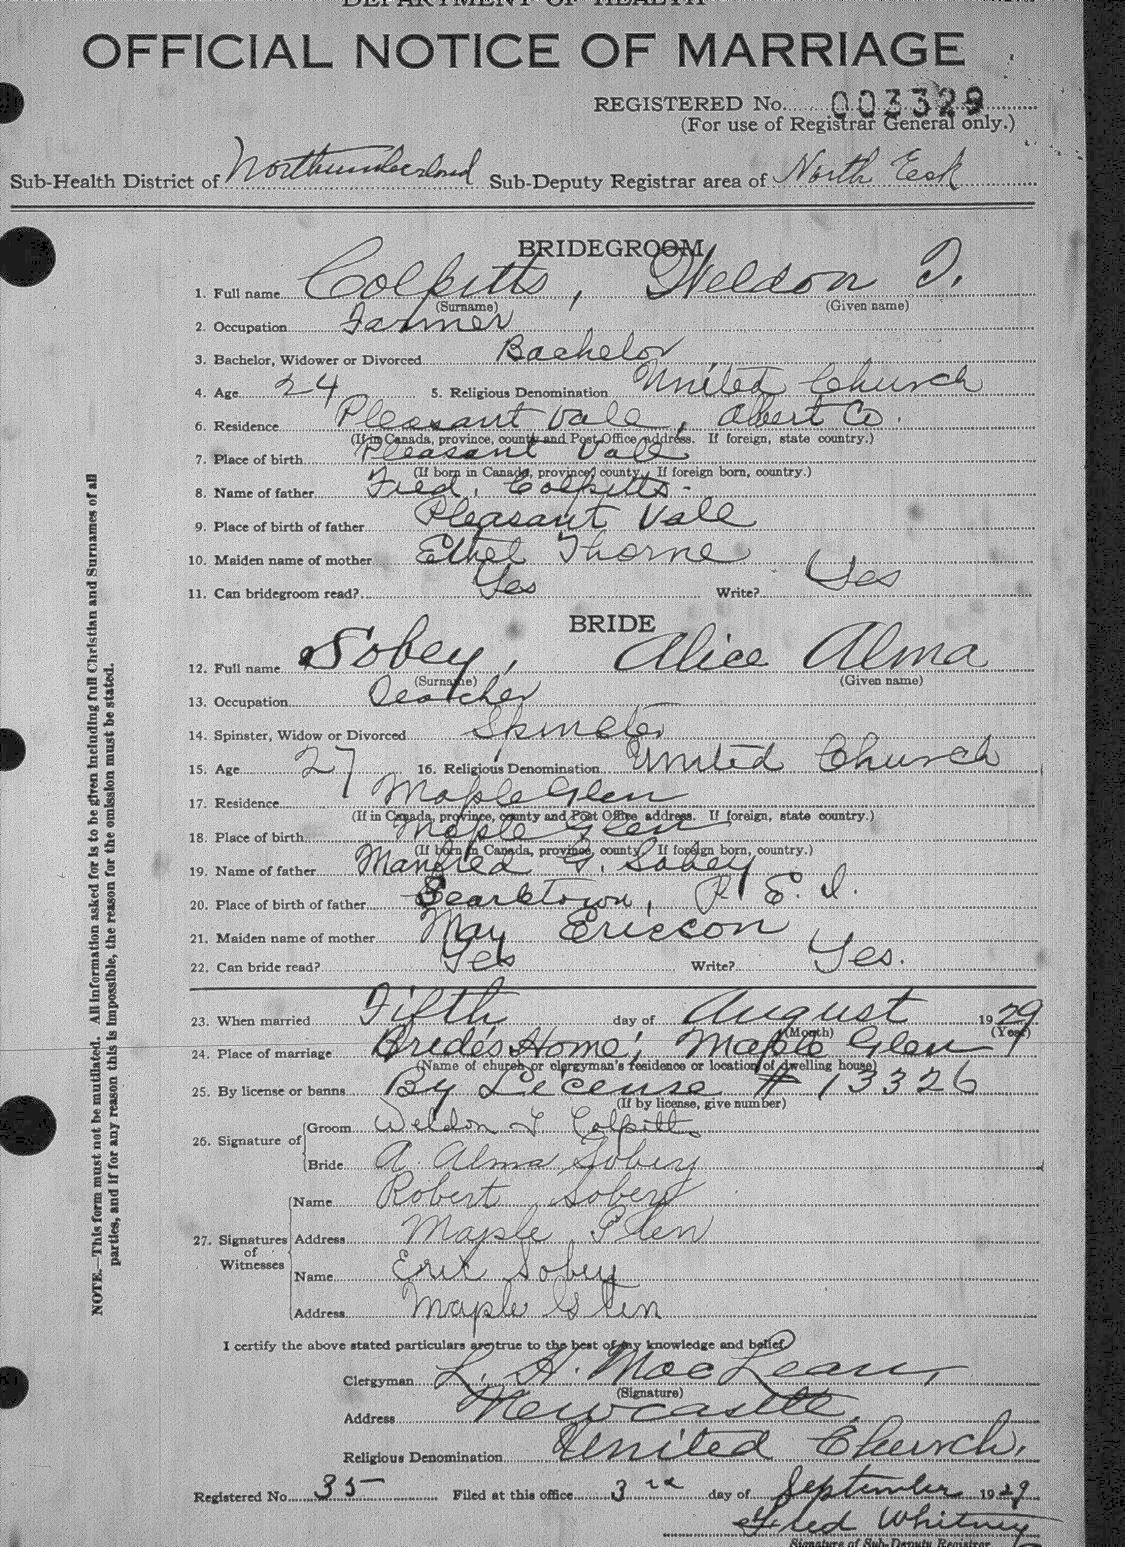 DEPARTMENT OF HEALTH
OFFICIAL NOTICE OF MARRIAGE
REGISTERED No. 003329
(For use of Registrar General only.)
Sub-Health District of Northumberland Sub-Deputy Registrar area of North Esk
BRIDEGROOM
1. Full name Colpitts, Weldon T.
(Surname) (Given name)
2. Occupation Farmer
3. Bachelor, Widower or Divorced Bachelor
4. Age 24 5. Religious Denomination United Church
6. Residence Pleasant Vale, Albert Co.
(If in Canada, province, county and Post Office address. If foreign, state country.)
7. Place of birth Pleasant Vale
(If born in Canada, province, county. If foreign born, country.)
8. Name of father Fred. Colpitts.
9. Place of birth of father Pleasant Vale
10. Maiden name of mother Ethel Thorne
11. Can bridegroom read? Yes Write? Yes
BRIDE
12. Full name Sobey, Alice Alma
(Surname) (Given name)
13. Occupation Teacher
14. Spinster, Widow or Divorced Spinster
15. Age 27 16. Religious Denomination United Church
17. Residence Maple Glen
(If in Canada, province, county and Post Office address. If foreign, state country.)
18. Place of birth Maple Glen
(If born in Canada, province, county. If foreign born, country.)
19. Name of father Manfred G. Sobey
20. Place of birth of father Searltown, P. E. I.
21. Maiden name of mother May Ericson
22. Can bride read? Yes Write? Yes.
23. When married Fifth day of August 1929
(Month) (Year)
24. Place of marriage Bride's Home, Maple Glen
(Name of church or clergyman's residence or location of dwelling house)
25. By license or banns By License # 13326
(If by license, give number)
26. Signature of
Groom Weldon T Colpitts
Bride A. Alma Sobey
27. Signatures of Witnesses
Name Robert Sobey
Address Maple Glen
Name Eric Sobey
Address Maple Glen
I certify the above stated particulars are true to the best of my knowledge and belief
Clergyman L. H. MacLean,
(Signature)
Address Newcastle
Religious Denomination United Church.
Registered No. 35 Filed at this office 3rd day of September 1929
Fred Whitney
Signature of Sub-Deputy Registrar
NOTE.—This form must not be mutilated. All information asked for is to be given including full Christian and Surnames of all
parties, and if for any reason this is impossible, the reason for the omission must be stated.